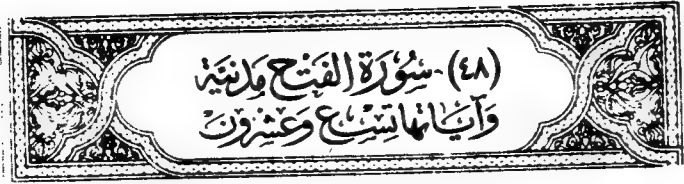 (٤٨) - سُوْرَة الفَتحِ مَدنيَة
وَآيَاتها تسْع وَعشرون